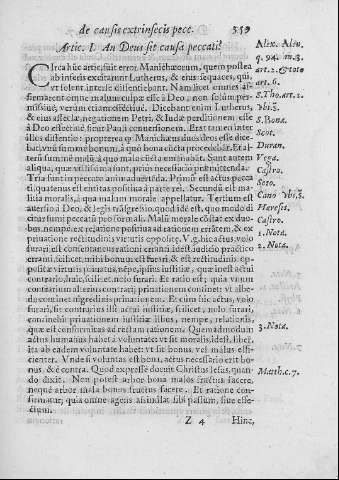 de causis extrinsecis pecc. 559
Artic. I. An Deus sit causa peccati?
Circa hūc artic. fuit error Manichæorum, quem postea
ab inferis excitarunt Lutherus, & eius sequaces, qui,
vt solent inter se dissentiebant. Nam licet omnes af-
firmarent omne malum culpæ esse à Deo, non solùm per-
missiuè, verùm etiam effectiuè. Dicebat enim Lutherus, &
eius asseclæ, negationem Petri, & Iudæ perditionem esse
à Deo effectiuè sicut Pauli conuersionem. Erat tamen inter
illos dissentio:
ci, vnū summè bonū, à quo bona cūcta procederēt. Et al-
terū summè malū, à quo mala cūcta emanabāt. Sunt autem
aliqua, quæ vtilissima sunt, prius necessario præmittenda.
Tria sunt in peccato animaduertēda. Primū est actus pecca
ti quatenus est entitas positiua à parte rei. Secundū est ma-
litia moralis, à qua malum morale appellatur. Tertium est
auersio à Deo, & legis trāsgressio, quod idē est, quo modo di
citur sumi peccatū pro formali. Malū morale cōstat ex duo-
bus, nempe, ex relatione positiua ad rationem errātem, & ex
priuatione rectitudinis virtutis opposite. V.g. hic actus, volo
furari, est consentaneus rationi erranti idest iudicio practico
erranti, scilicet, mihi bonum est furari, & est rectitudinis op-
positæ virtutis priuatus, nēpe, ipsius iustitiæ, quæ inest actui
contrario huic, scilicet nolo furari. Et ratio est; quia vnum
contrarium alterius contrarij, priuationem continet: vt albe-
do continet nigredinis priuationem. Et cùm hic actus, volo
furari, sit contrarius actui iustitiæ, scilicet, nolo furari,
continebit priuationem iustitiæ illius, nempe, relationis,
quæ est conformitas ad rectam rationem. Quemadmodum
actus humanus habet à voluntate: vt sit moralis, idest, liber,
ita ab eadem voluntate habet: vt sit bonus, vel malus effi-
cienter. Vnde si voluntas est bona, actus necessario erit bo-
nus, & è contra. Quod expressè docuit Christus Iesus, quan-
do dixit. Non potest arbor bona malos fructus facere,
neque arbor mala bonos fructus facere. Et ratione con-
firmatur, quia omne agens assimilat sibi passum, siue ef-
fectum.
Z 4 Hinc,
Alex. Alen.
q. 94. m. 3.
art. 2. & toto
art. 6.
S. Tho. art. 2.
vbi S.
S. Bona.
Scot.
Duran.
Vega.
Castro.
Soto.
Cano vbi S.
Heresis.
Castro.
1. Nota.
2. Nota.
3. Nota.
Matth. c. 7.